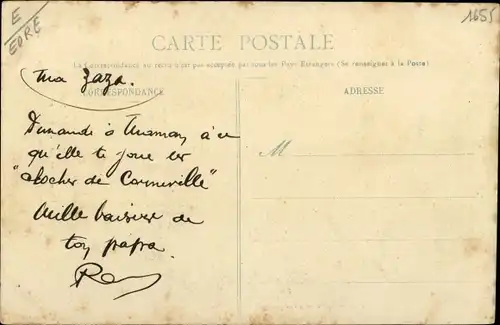 E
EURE
1655
CARTE POSTALE
La Correspondance au recto n'est pas acceptée par tous les Pays Étrangers (Se renseigner à la Poste)
CORRESPONDANCE
ADRESSE
M
Ma Zaza.
Demande à Maman à ce
qu'elle te joue les
"cloches de Corneville"
Mille baisers de
ton papa